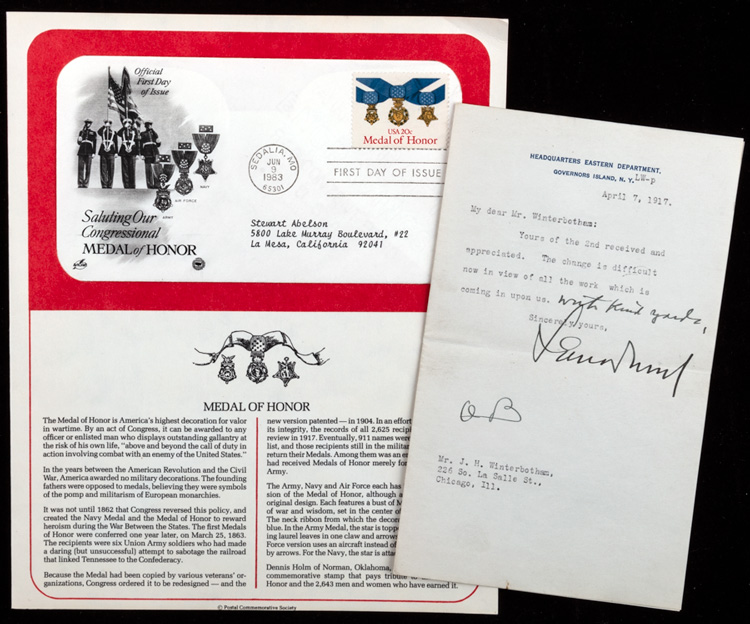 Official
First Day
of Issue
AIR FORCE
NAVY
ARMY
Saluting Our
Congressional
MEDAL of HONOR
SEDALIA, MO
JUN
9
1983
65301
USA 20c
Medal of Honor
FIRST DAY OF ISSUE
Stewart Abelson
5800 Lake Murray Boulevard, #22
La Mesa, California 92041
MEDAL OF HONOR
The Medal of Honor is America's highest decoration for valor
in wartime. By an act of Congress, it can be awarded to any
officer or enlisted man who displays outstanding gallantry at
the risk of his own life, "above and beyond the call of duty in
action involving combat with an enemy of the United States."
In the years between the American Revolution and the Civil
War, America awarded no military decorations. The founding
fathers were opposed to medals, believing they were symbols
of the pomp and militarism of European monarchies.
It was not until 1862 that Congress reversed this policy, and
created the Navy Medal and the Medal of Honor to reward
heroism during the War Between the States. The first Medals
of Honor were conferred one year later, on March 25, 1863.
The recipients were six Union Army soldiers who had made
a daring (but unsuccessful) attempt to sabotage the railroad
that linked Tennessee to the Confederacy.
Because the Medal had been copied by various veterans' or-
ganizations, Congress ordered it to be redesigned — and the
new version patented — in 1904. In an effort
its integrity, the records of all 2,625
review in 1917. Eventually, 911 names were
list, and those recipients still in the
return their Medals. Among them was an
had received Medals of Honor merely for
Army.
The Army, Navy and Air Force each has
sion of the Medal of Honor, although a
original design. Each features a bust of
of war and wisdom, set in the center of
The neck ribbon from which the
blue. In the Army Medal, the star is
ing laurel leaves in one claw and arrows
Force version uses an aircraft instead of
by arrows. For the Navy, the star is
Dennis Holm of Norman, Oklahoma,
commemorative stamp that pays tribute
Honor and the 2,643 men and women who have earned it.
© Postal Commemorative Society
HEADQUARTERS EASTERN DEPARTMENT,
GOVERNORS ISLAND, N. Y. LW-p
April 7, 1917.
My dear Mr. Winterbotham:
Yours of the 2nd received and
appreciated. The change is difficult
now in view of all the work which is
coming in upon us. With kind
Sincerely yours,
Mr. J. H. Winterbotham,
226 So. La Salle St.,
Chicago, Ill.